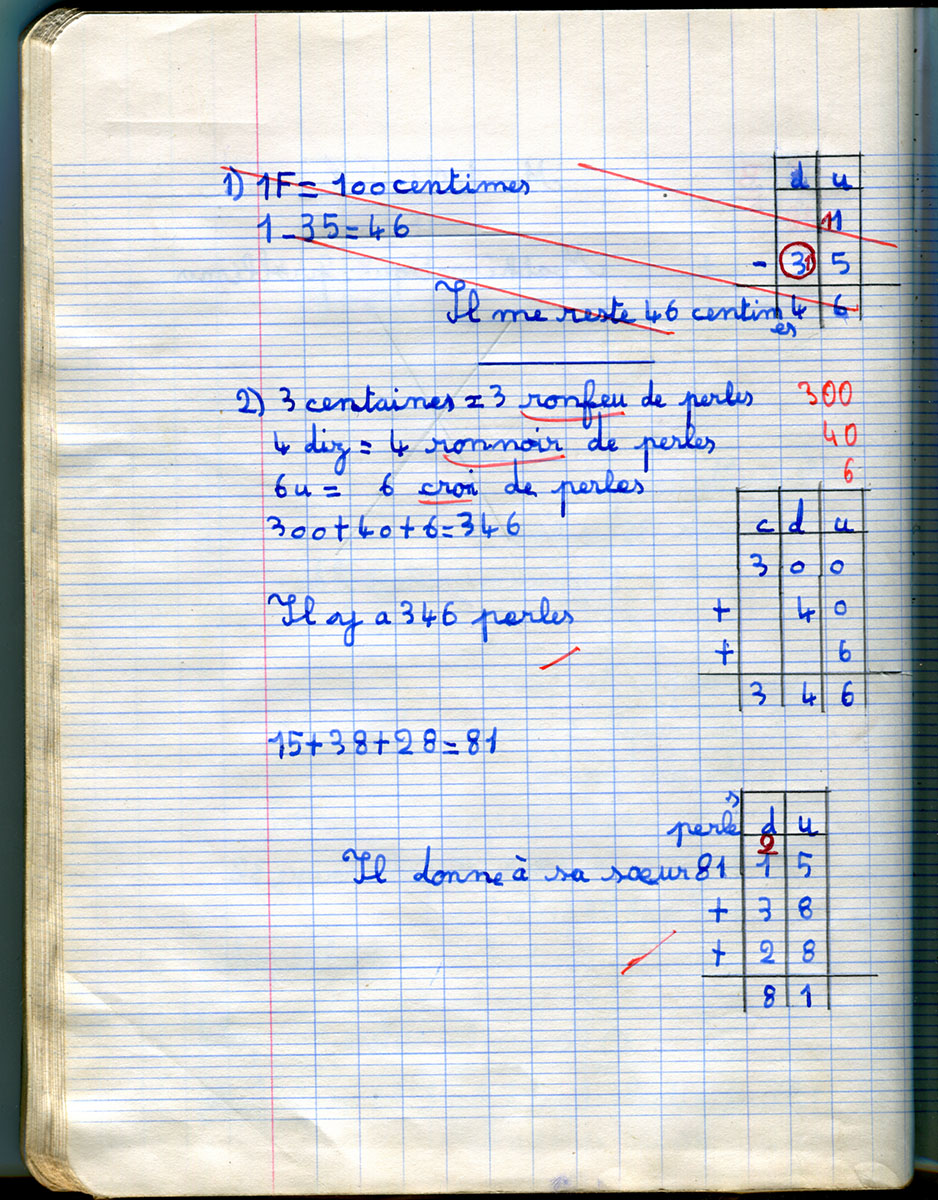 1) 1F = 100 centimes
1 - 35 = 46
d u
11
- 31 5
4 6
Il me reste 46 centimes
2) 3 centaines = 3 ronfeu de perles 300
4 diz = 4 ronnoir de perles 40
6u = 6 croi de perles 6
300 + 40 + 6 = 346
c d u
3 0 0
+ 4 0
+ 6
3 4 6
Il y a 346 perles
15 + 38 + 28 = 81
d u
2
1 5
+ 3 8
+ 2 8
8 1
Il donne à sa sœur 81 perles